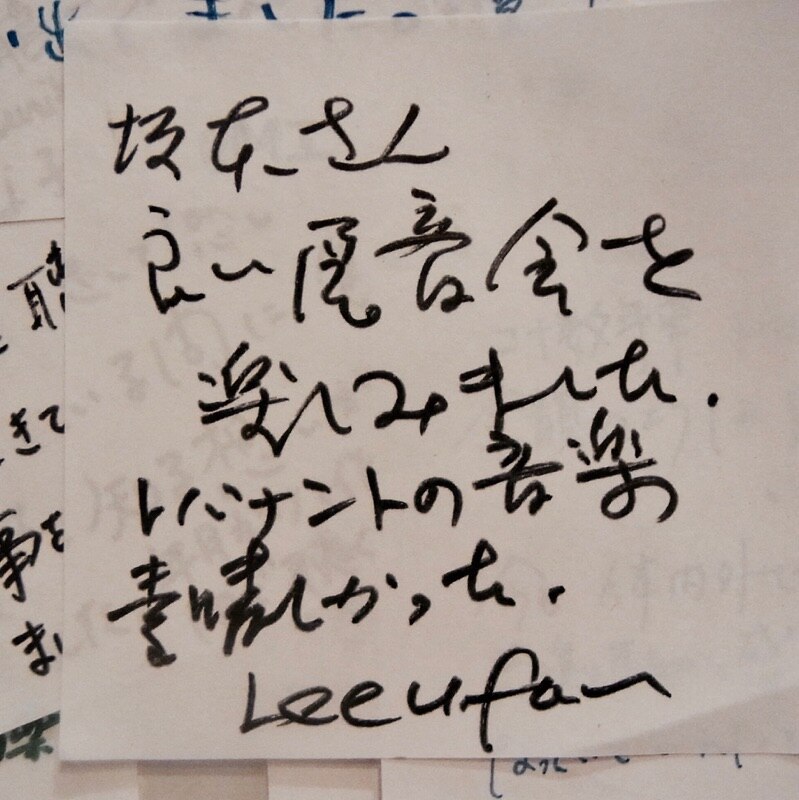 坂本さん
良い展音会を
楽しみました.
レバナントの音楽
素晴しかった.
Lee ufan
きて
事を